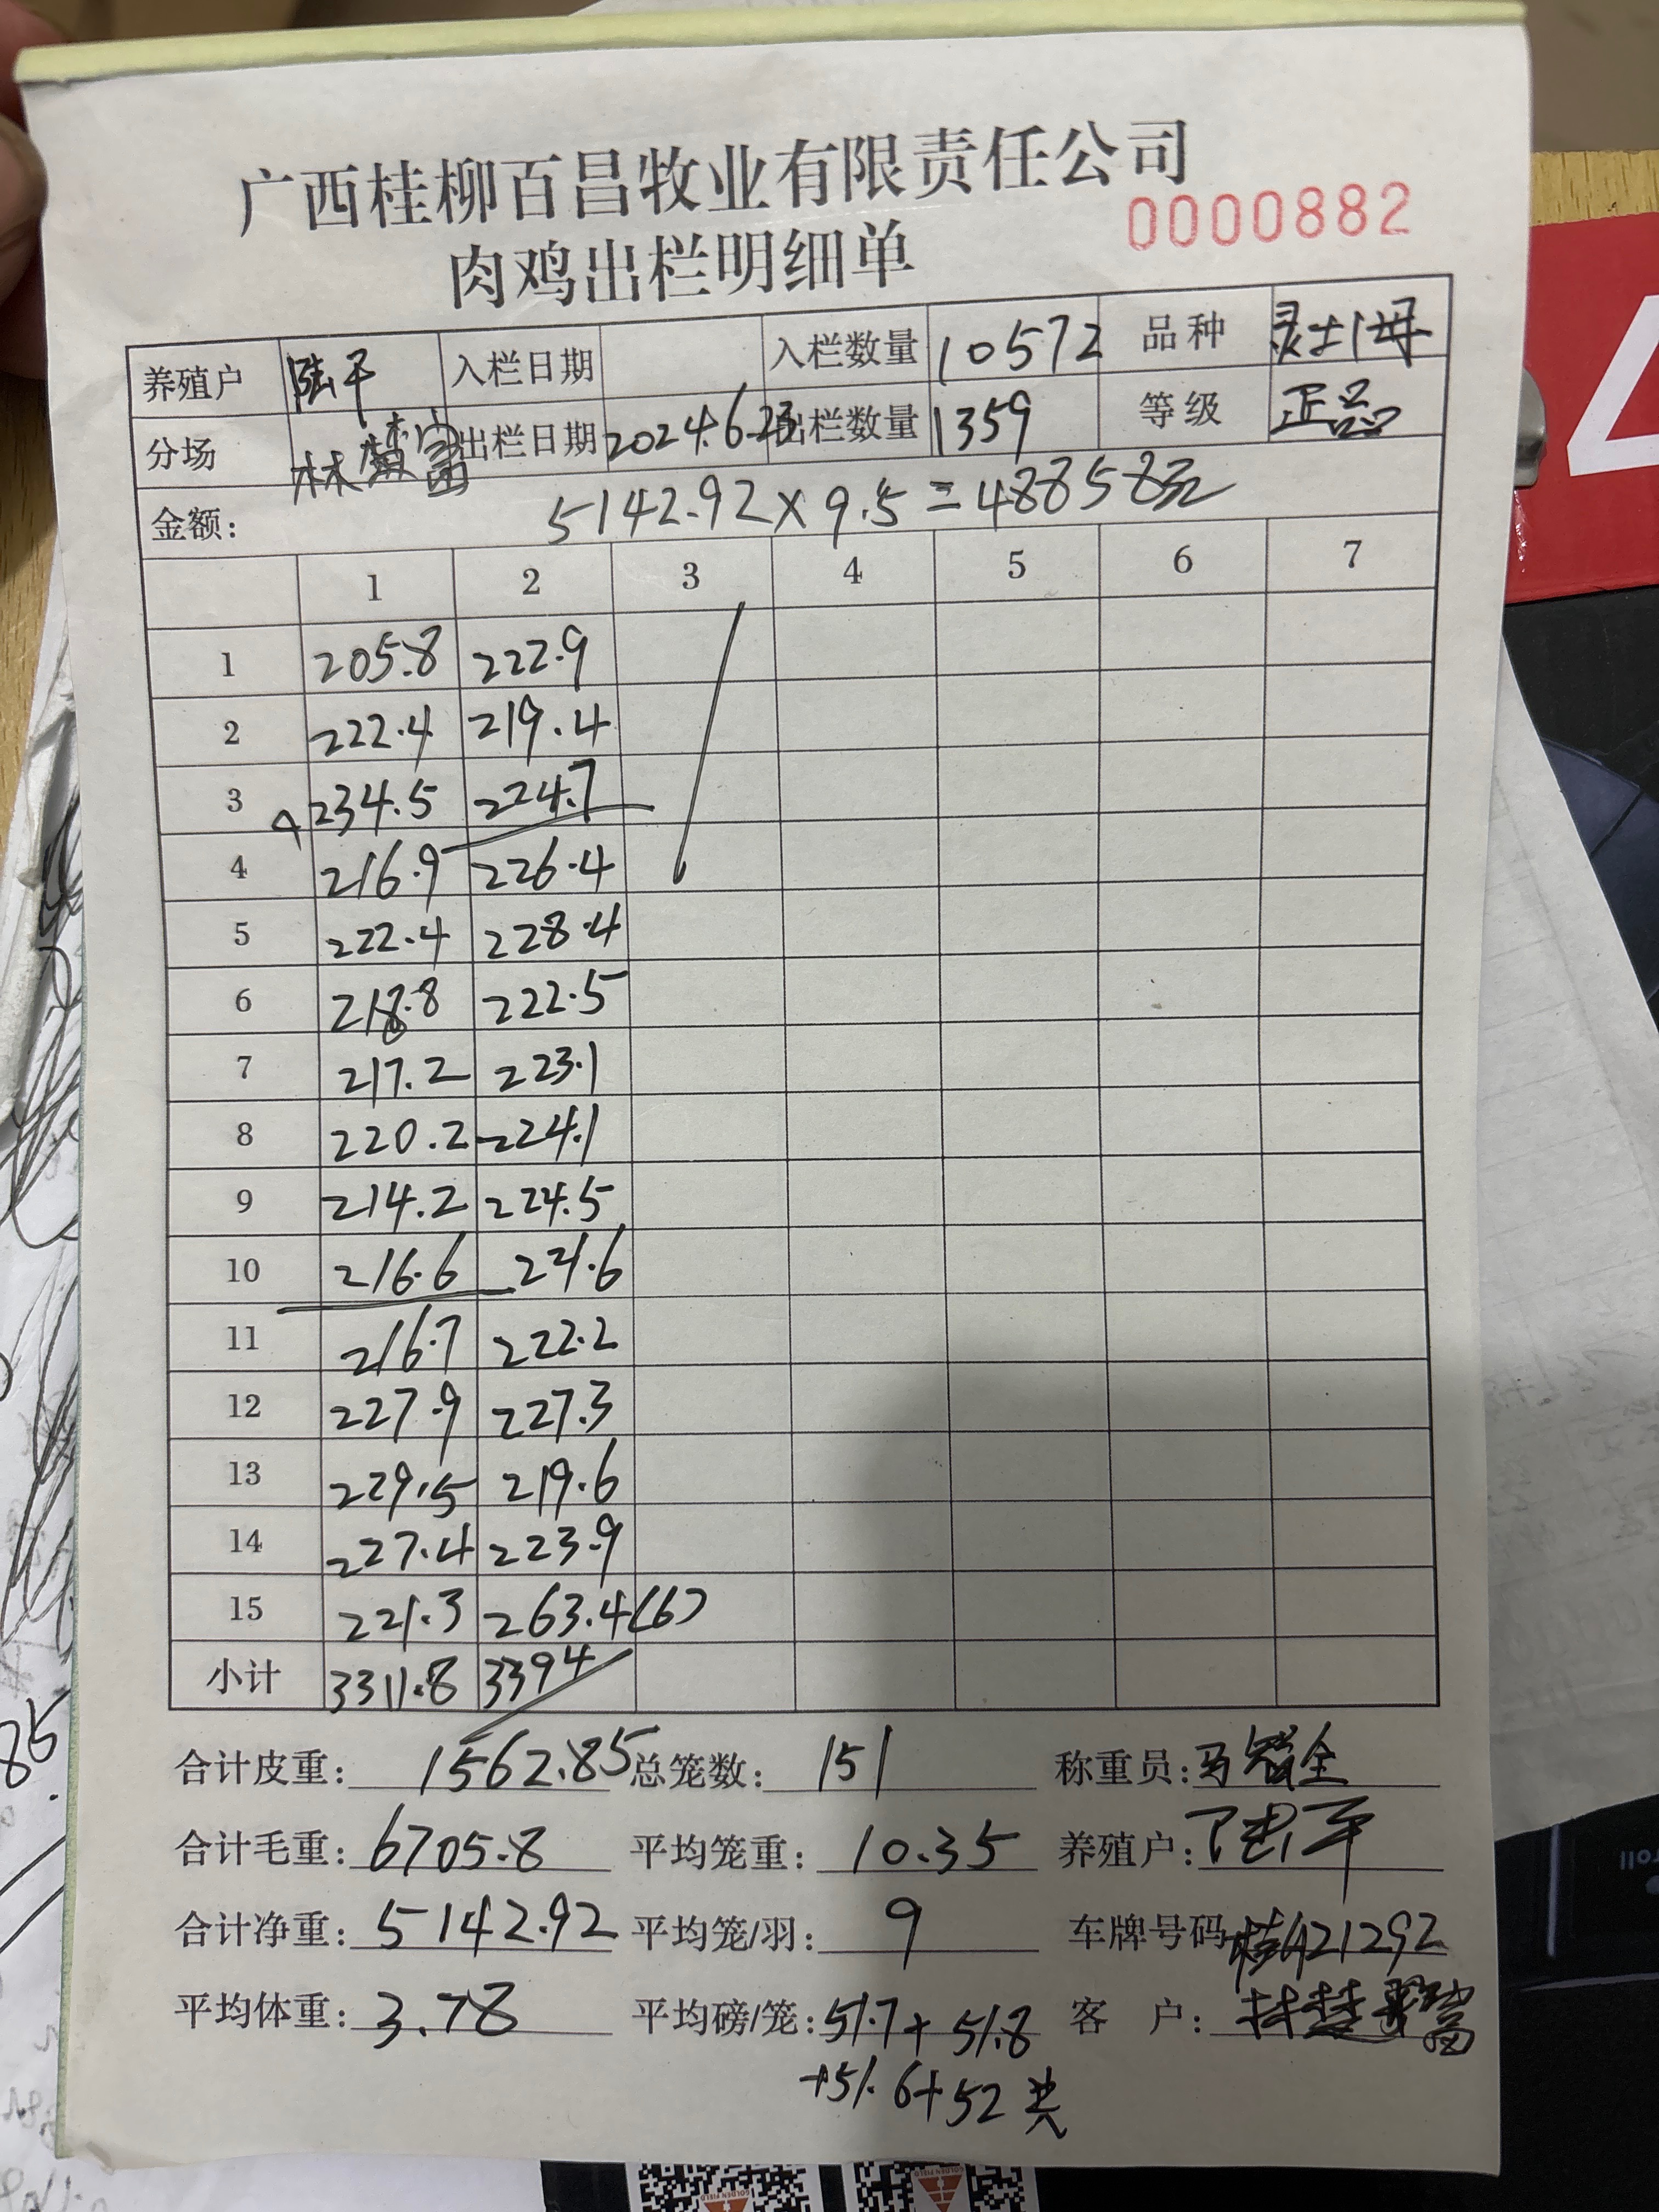 广西桂柳百昌牧业有限责任公司
0000882
肉鸡出栏明细单
养殖户 陆平 入栏日期 入栏数量 10572 品种 灵土1母
分场 林楚富 出栏日期 2024.6.23 出栏数量 1359 等级 正品
金额: 5142.92×9.5=48858元
1 2 3 4 5 6 7
1 205.8 222.9
2 222.4 219.4
3 234.5 224.7
4 216.9 226.4
5 222.4 228.4
6 218.8 222.5
7 217.2 223.1
8 220.2 224.1
9 214.2 224.5
10 216.6 221.6
11 216.7 222.2
12 227.9 227.3
13 229.5 219.6
14 227.4 223.9
15 221.3 263.4(6)
小计 3311.8 3394
合计皮重: 1562.85 总笼数: 151 称重员:马 全
合计毛重: 6705.8 平均笼重: 10.35 养殖户: 陆平
合计净重: 5142.92 平均笼/羽: 9 车牌号码 桂A21292
平均体重: 3.78 平均磅/笼: 51.7+51.8 客户:
+51.6+52 共